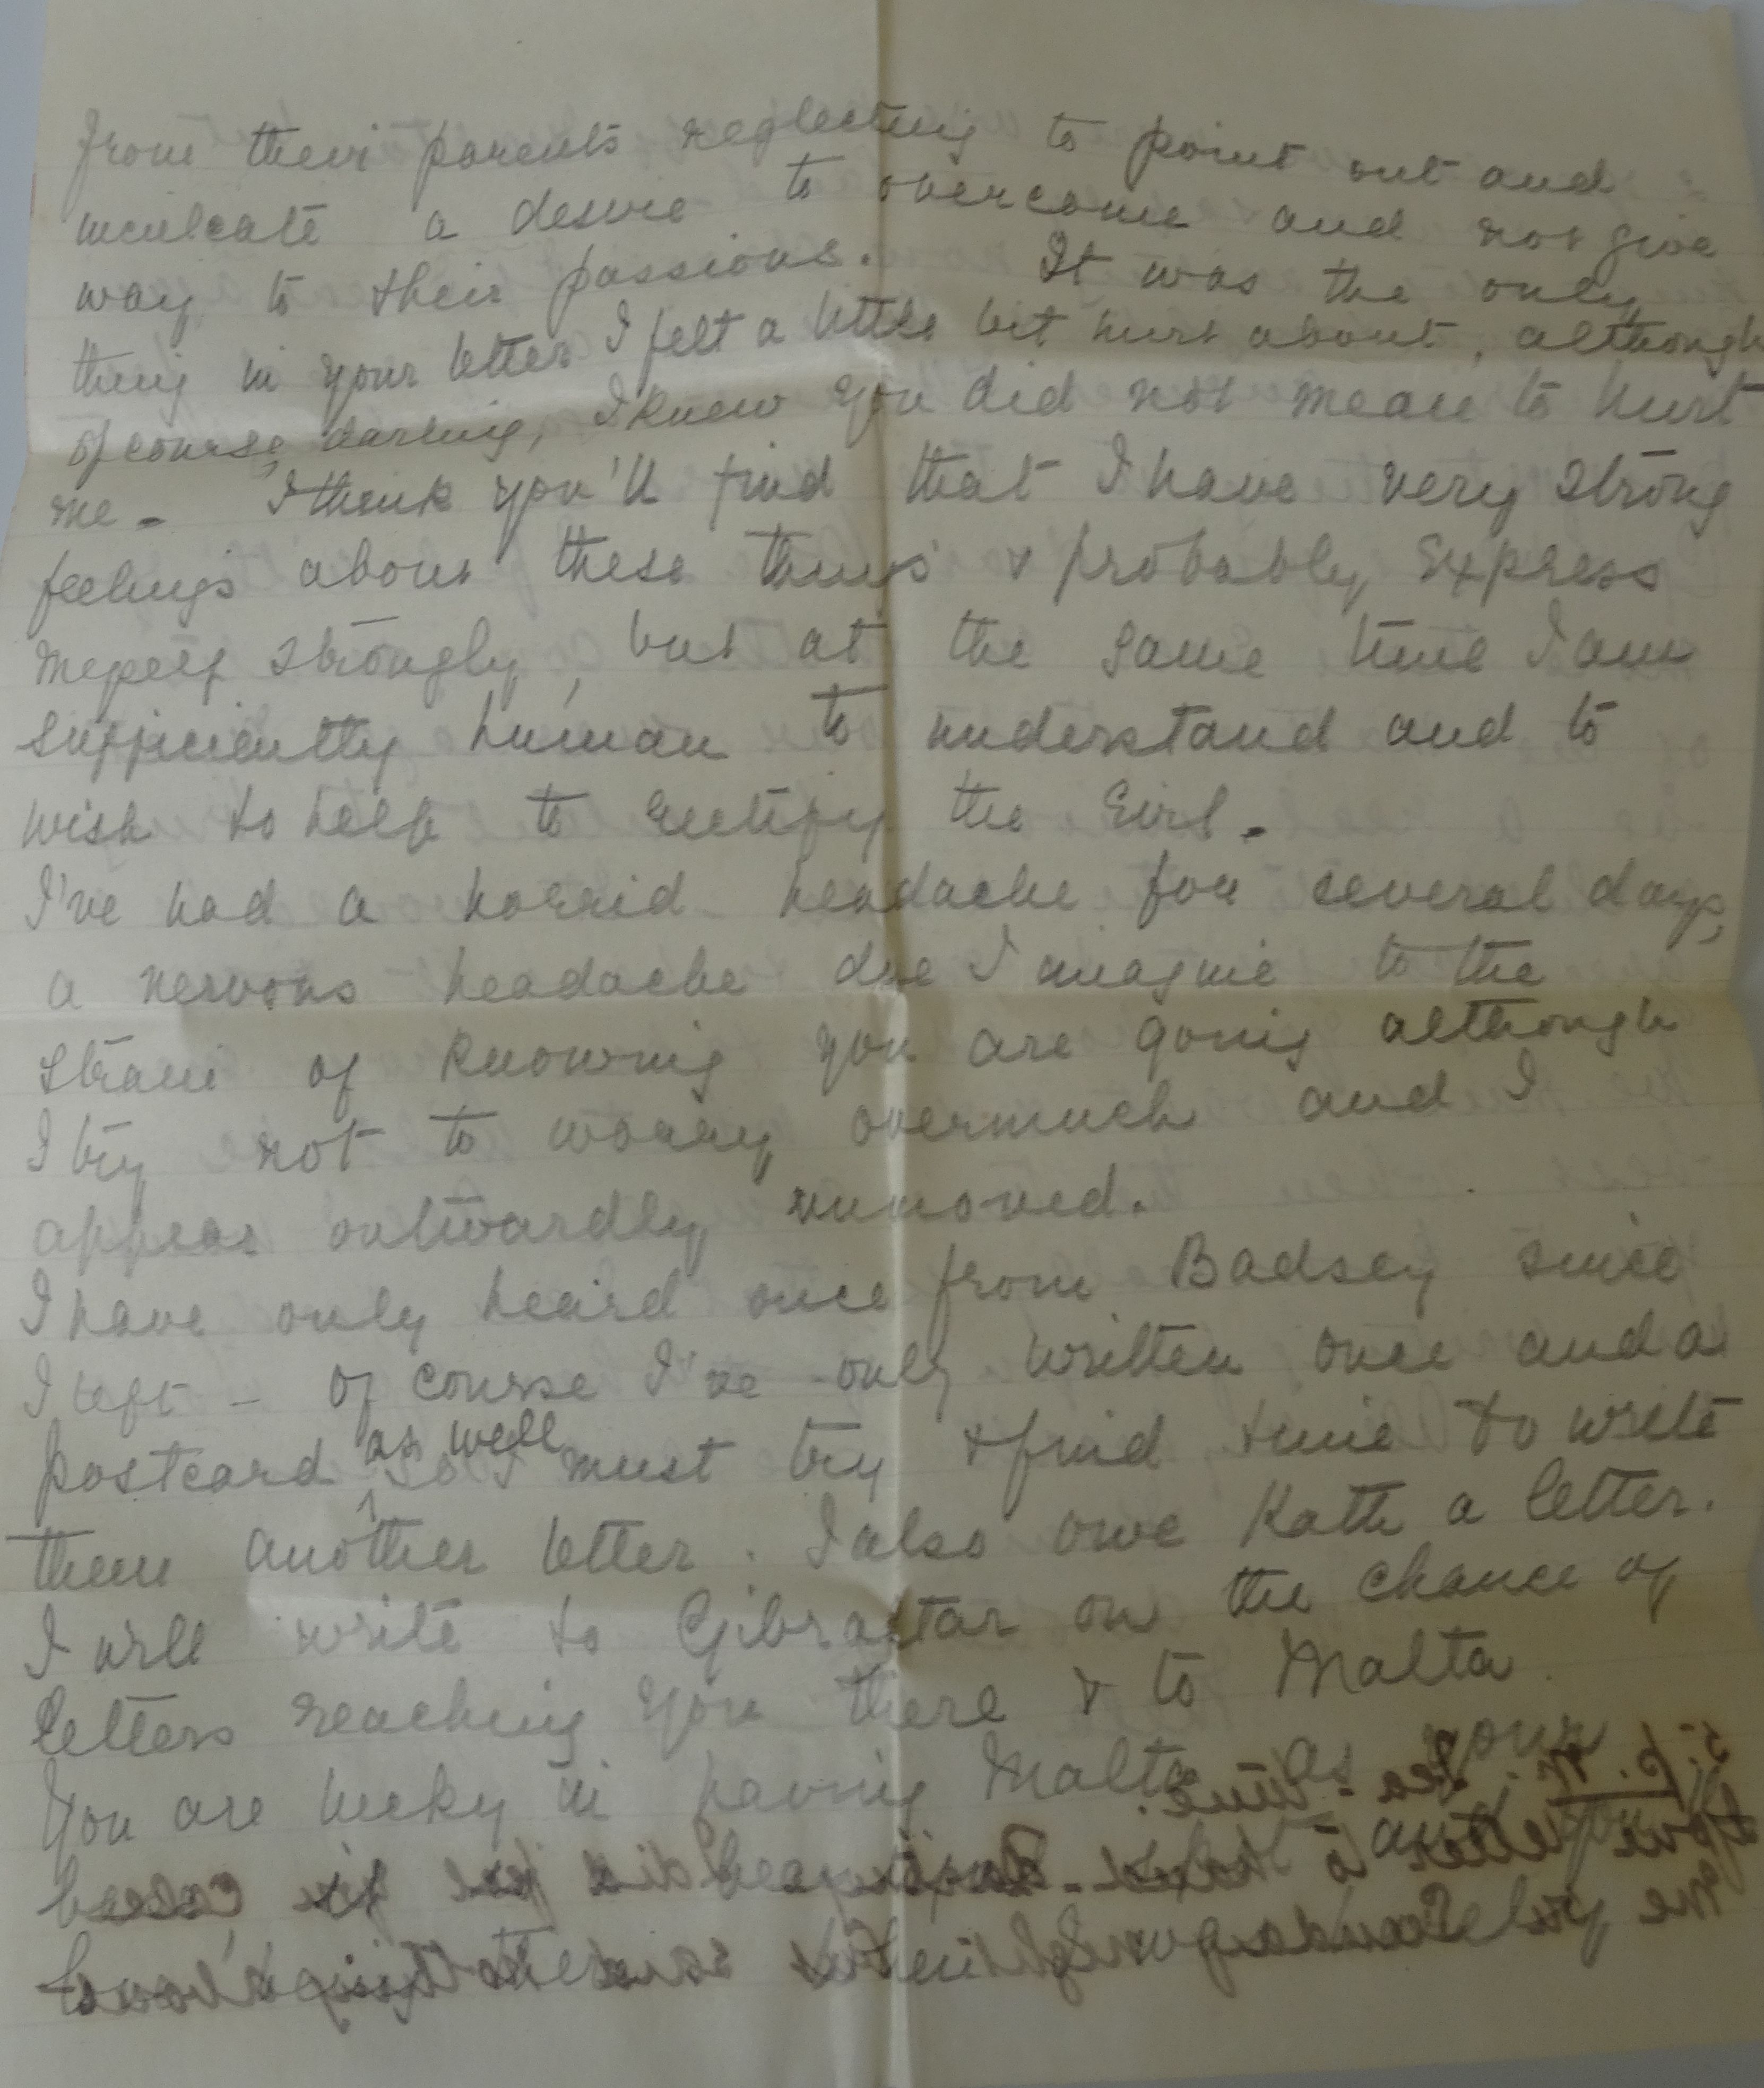 from their parents neglecting to point out and
inculcate a desire to overcome and not give
way to their passions. It was the only
thing in your letter I felt a little bit hurt about, although
of course, darling, I knew you did not mean to hurt
me - I think you'll find that I have very strong
feelings about these things & probably express
myself strongly, but at the same time I am
sufficiently human to understand and to
wish to help to rectify the evil -
I've had a horrid headache for several days,
a nervous headache due I imagine to the
strain of knowing you are going although
I try not to worry overmuch and I
appear outwardly unmoved.
I have only heard once from Badsey since
I left - of course I've only written once and a
postcard as well so I must try & find time to write
them another letter. I also owe Kath a letter.
I will write to Gibraltar on the chance of
letters reaching you there & to Malta.
You are lucky in having Malta as your